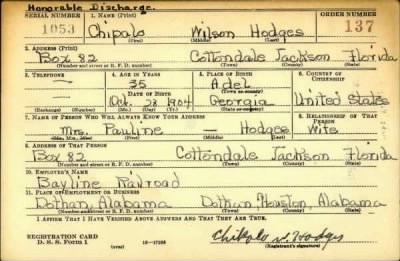 Honorable Discharge.
SERIAL NUMBER 1. NAME (Print) ORDER NUMBER
1053 Chipalo Wilson Hodges 137
(First) (Middle) (Last)
2. ADDRESS (Print)
Box 82 Cottondale Jackson Florida
(Number and street or R. F. D. number) (Town) (County) (State)
3. TELEPHONE 4. AGE IN YEARS 5. PLACE OF BIRTH 6. COUNTRY OF CITIZENSHIP
— 35 Adel
(Town or county)
DATE OF BIRTH
— Oct. 28 1904 Georgia United States
(Exchange) (Number) (Mo.) (Day) (Yr.) (State or country)
7. NAME OF PERSON WHO WILL ALWAYS KNOW YOUR ADDRESS 8. RELATIONSHIP OF THAT PERSON
Mrs. Pauline — Hodges Wife
(Mr., Mrs., Miss) (First) (Middle) (Last)
9. ADDRESS OF THAT PERSON
Box 82 Cottondale Jackson Florida
(Number and street or R. F. D. number) (Town) (County) (State)
10. EMPLOYER'S NAME
Bayline Railroad
11. PLACE OF EMPLOYMENT OR BUSINESS
Dothan, Alabama Dothan, Houston, Alabama
(Number and street or R. F. D. number) (Town) (County) (State)
I AFFIRM THAT I HAVE VERIFIED ABOVE ANSWERS AND THAT THEY ARE TRUE.
REGISTRATION CARD
D. S. S. Form 1 (over) 16—17105 Chipalo W. Hodges
(Registrant's signature)